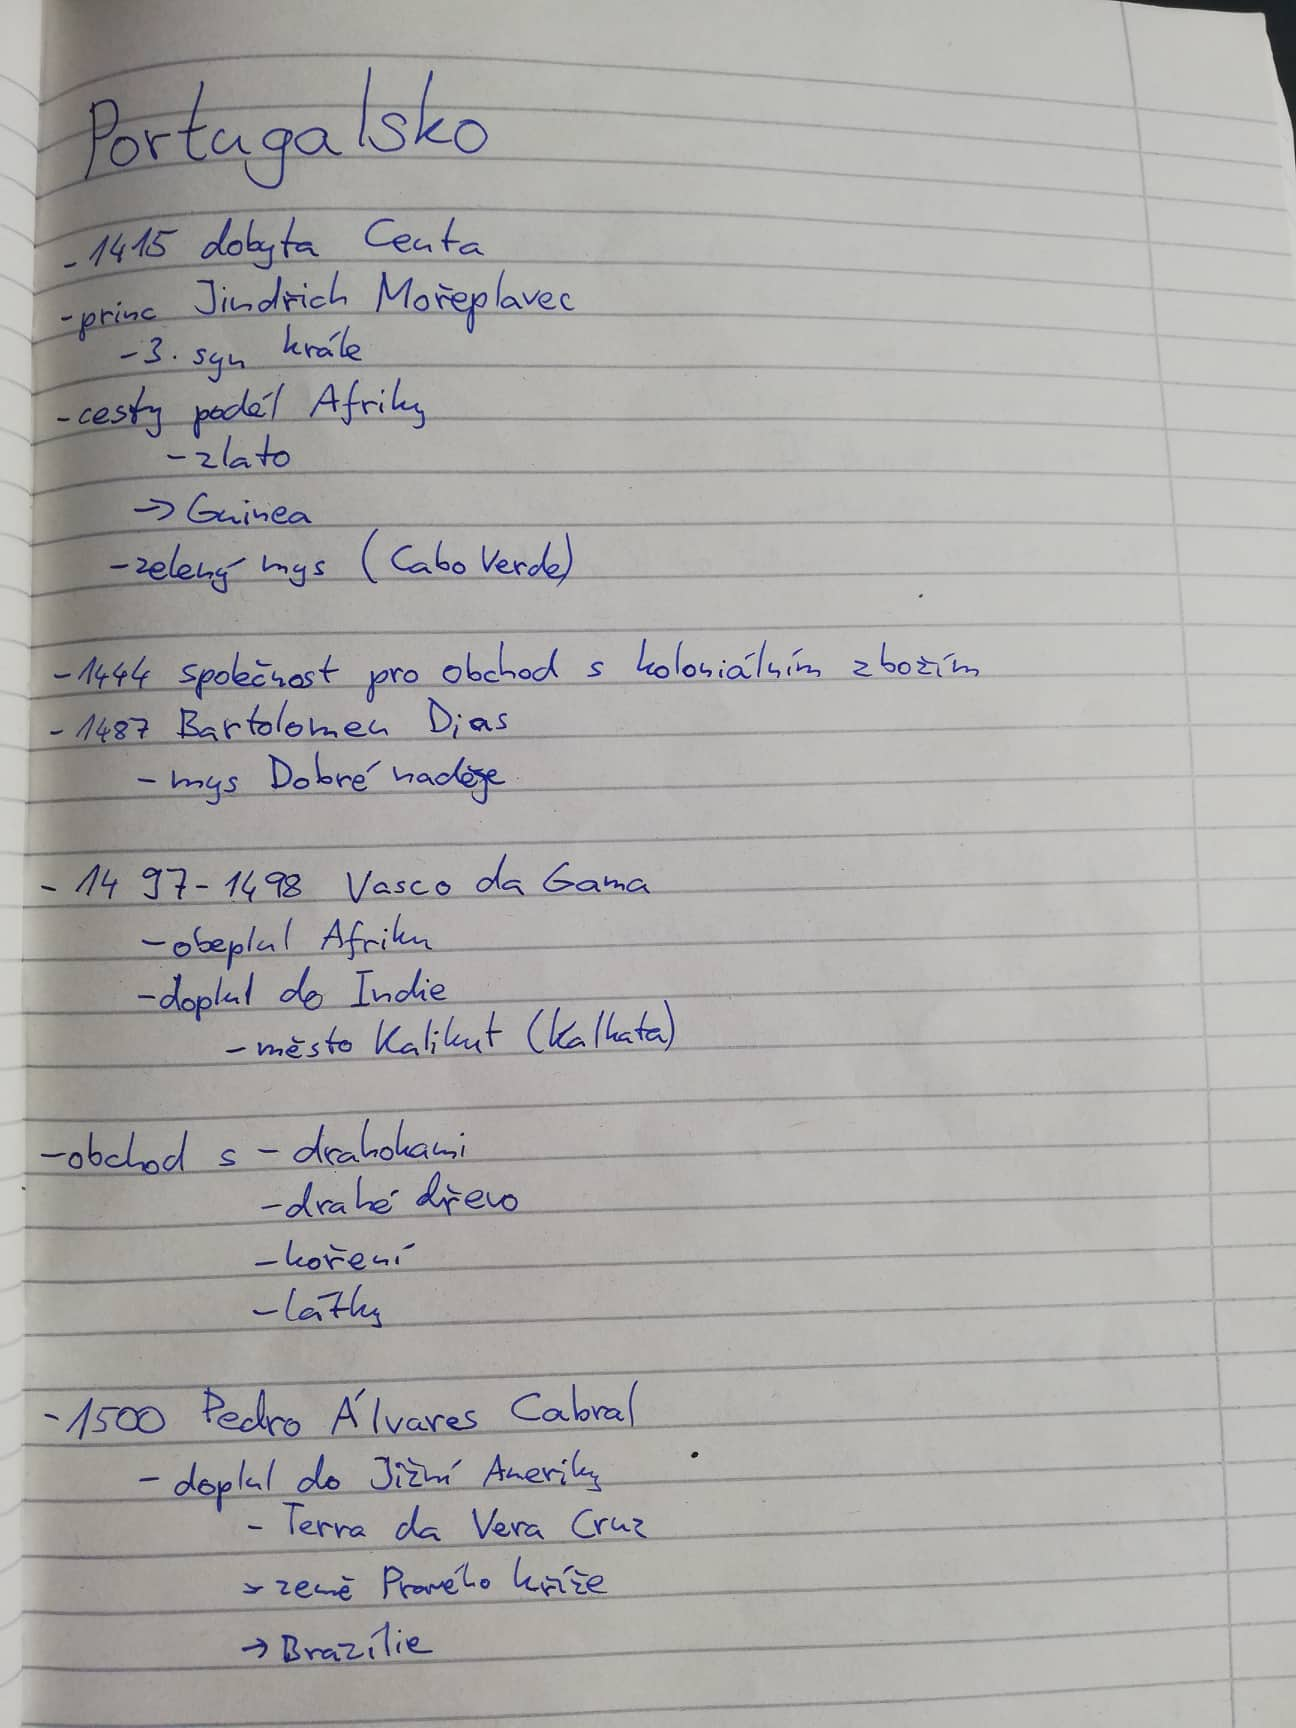 Portugalsko
- 1415 dobyta Ceuta
- princ Jindřich Mořeplavec
- 3. syn krále
- cesty podél Afriky
- zlato
→ Guinea
- zelený mys (Cabo Verde)
- 1444 společnost pro obchod s koloniálním zbožím
- 1487 Bartolomeu Dias
- mys Dobré naděje
- 1497 - 1498 Vasco da Gama
- obeplul Afriku
- doplul do Indie
- město Kalikut (Kalkata)
- obchod s - drahokami
- drahé dřevo
- koření
- látky
- 1500 Pedro Álvares Cabral
- doplul do Jižní Ameriky
- Terra da Vera Cruz
> země Pravého kříže
→ Brazílie